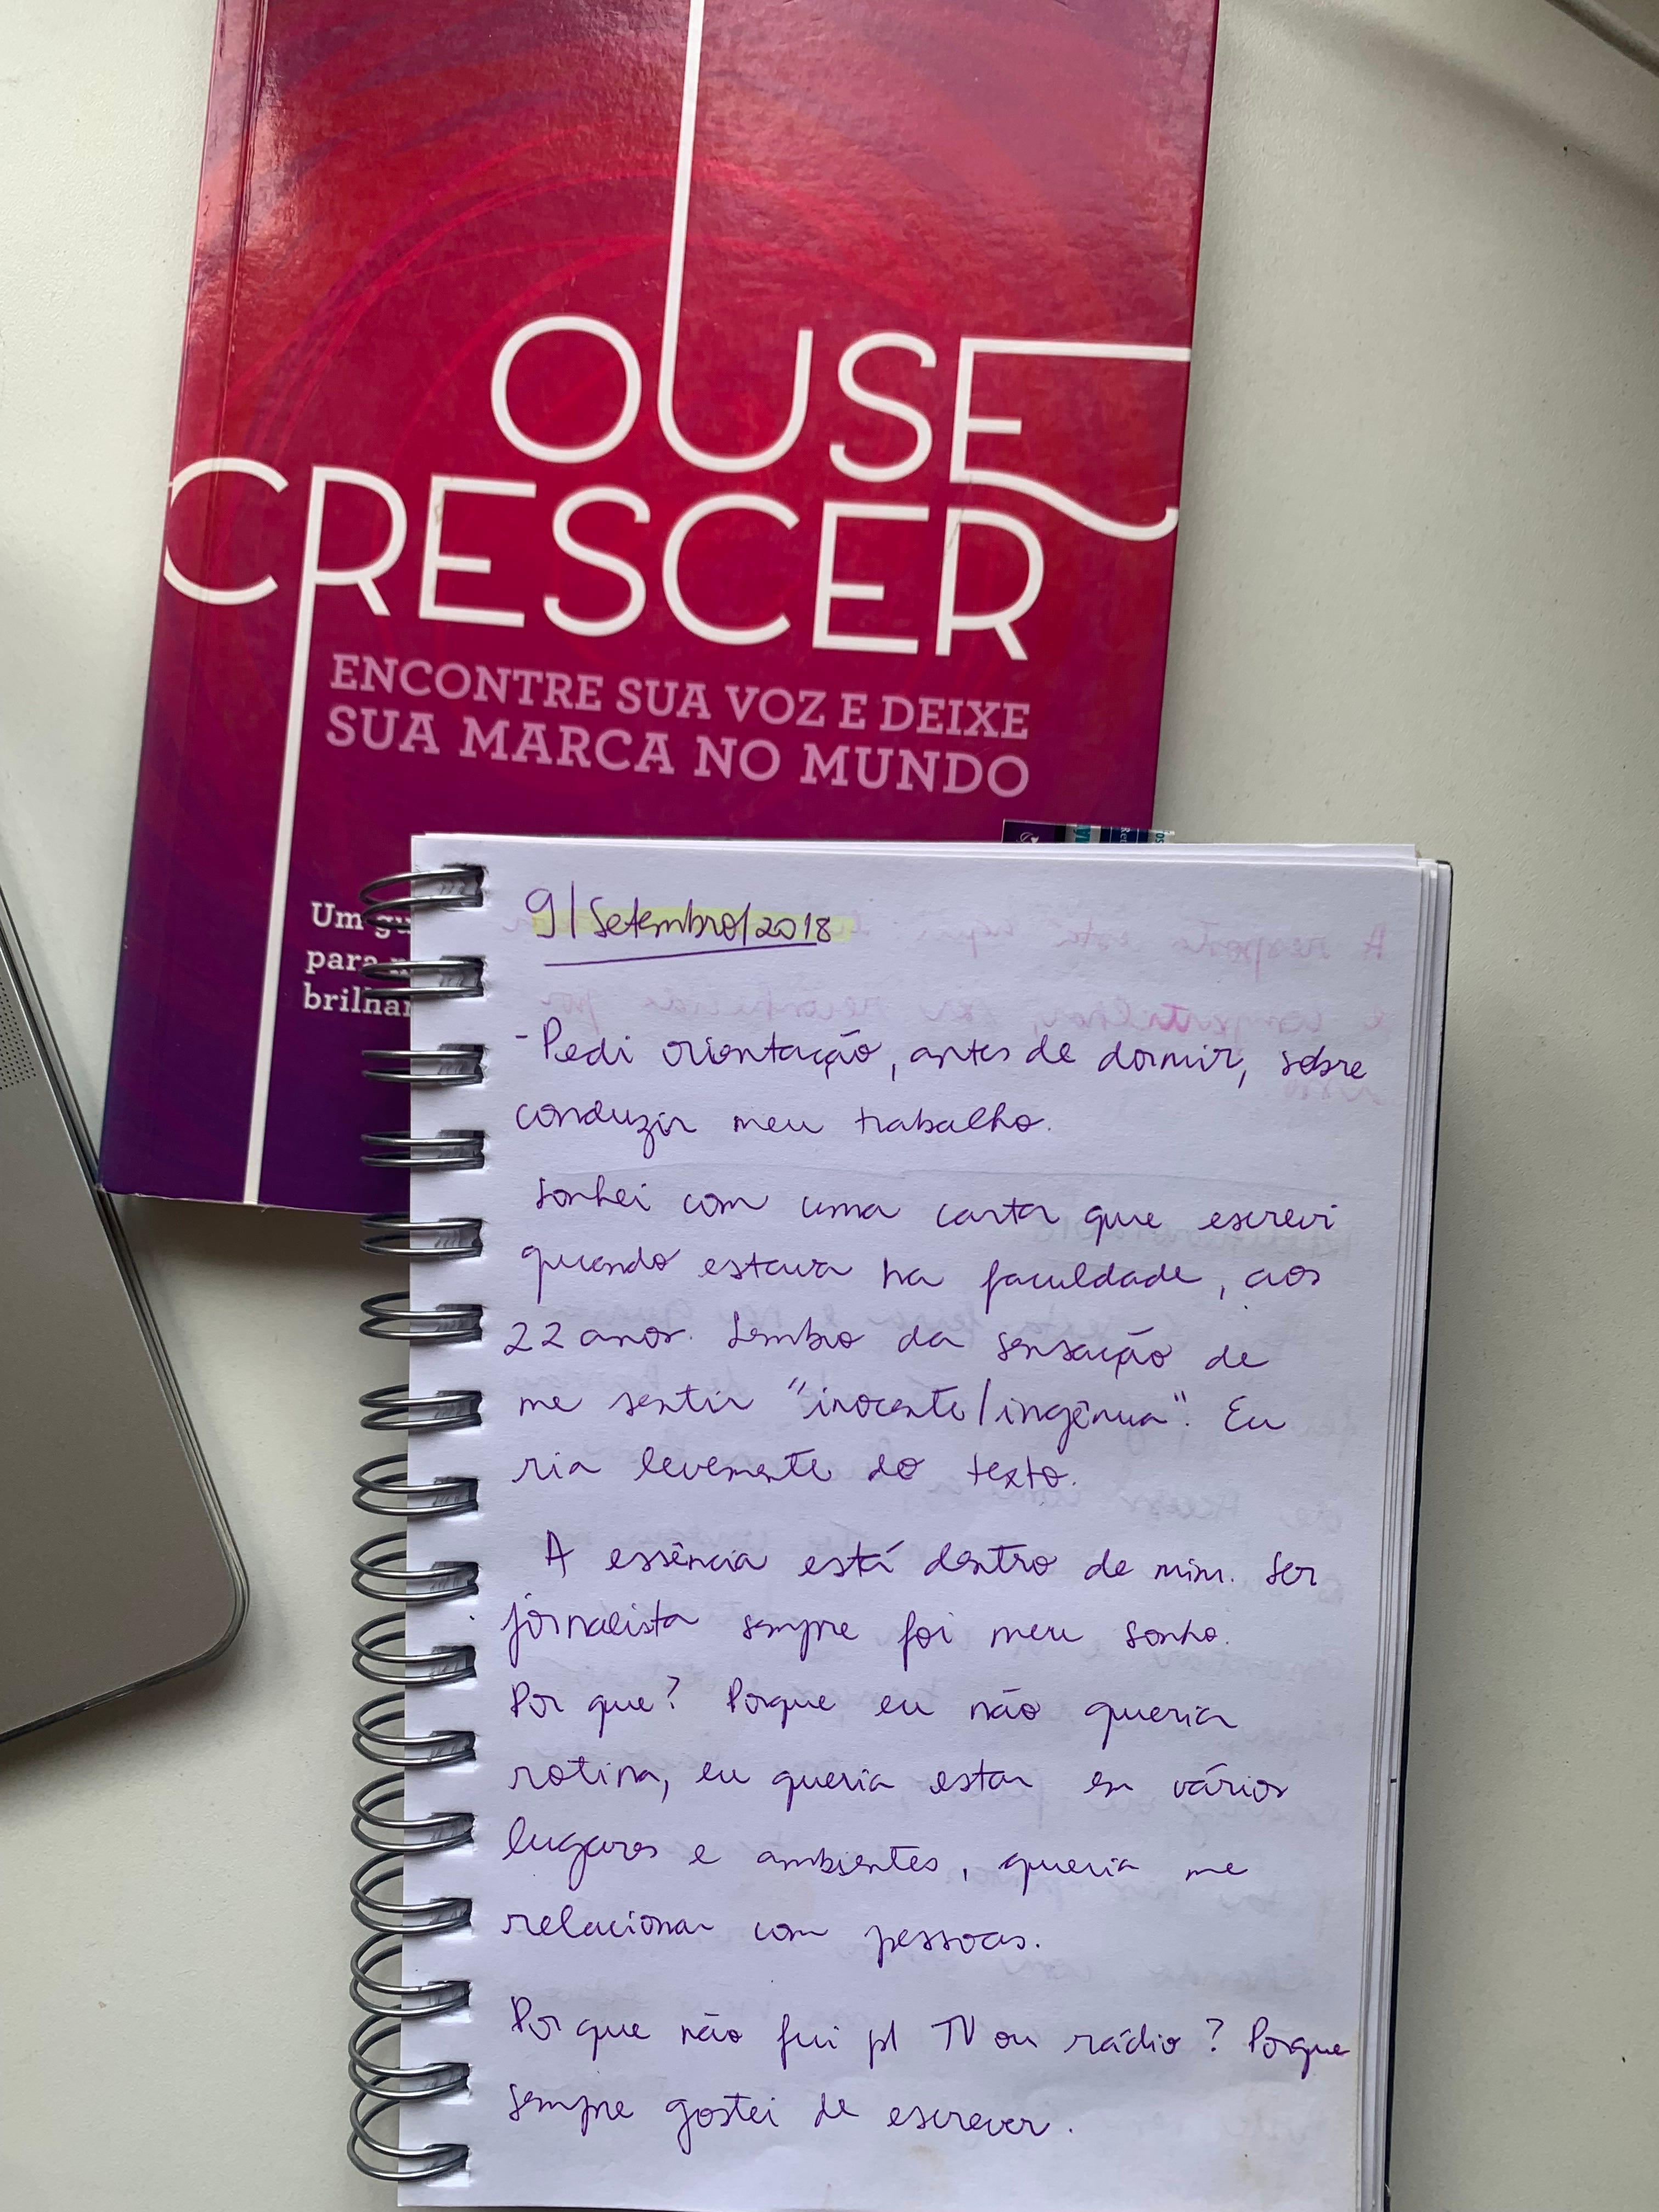 OUSE
CRESCER
ENCONTRE SUA VOZ E DEIXE
SUA MARCA NO MUNDO
Um
para
brilhar
9/Setembro/2018
- Pedi orientação, antes de dormir, sobre
conduzir meu trabalho.
Sonhei com uma carta que escrevi
quando estava na faculdade, aos
22 anos. Lembro da sensação de
me sentir "inocente/ingênua". Eu
ria levemente do texto.
A essência está dentro de mim. Ser
jornalista sempre foi meu sonho.
Por que? Porque eu não queria
rotina, eu queria estar em vários
lugares e ambientes, queria me
relacionar com pessoas.
Por que não fui p/ TV ou rádio? Porque
sempre gostei de escrever.